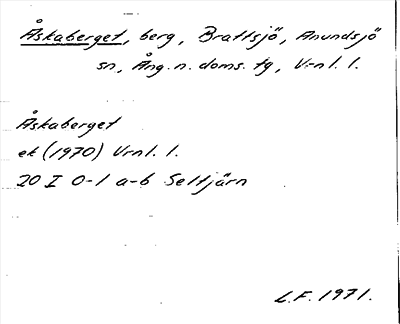 Åskaberget, berg, Brattsjö, Anundsjö
sn, Ång. n. doms. tg, V:nl. l.
Åskaberget
ek (1970) Vrnl. l.
20 I 0-1 a-b Seltjärn
L.F. 1971.